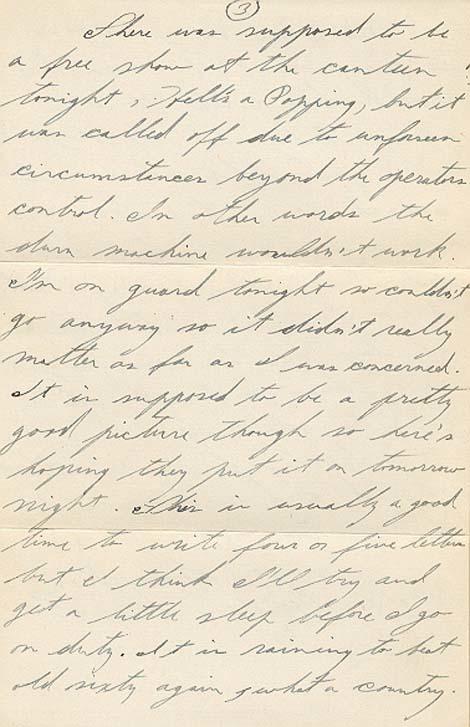 3
There was supposed to be
a free show at the canteen
tonight, Hell's a Popping, but it
was called off due to unforseen
circumstances beyond the operators
control. In other words the
durn machine wouldn't work.
I'm on guard tonight so couldn't
go anyway so it didn't really
matter as far as I was concerned.
It is supposed to be a pretty
good picture though so here's
hoping they put it on tomorrow
night. This is usually a good
time to write four or five letters
but I think I'll try and
get a little sleep before I go
on duty. It is raining to beat
old sixty again, what a country.